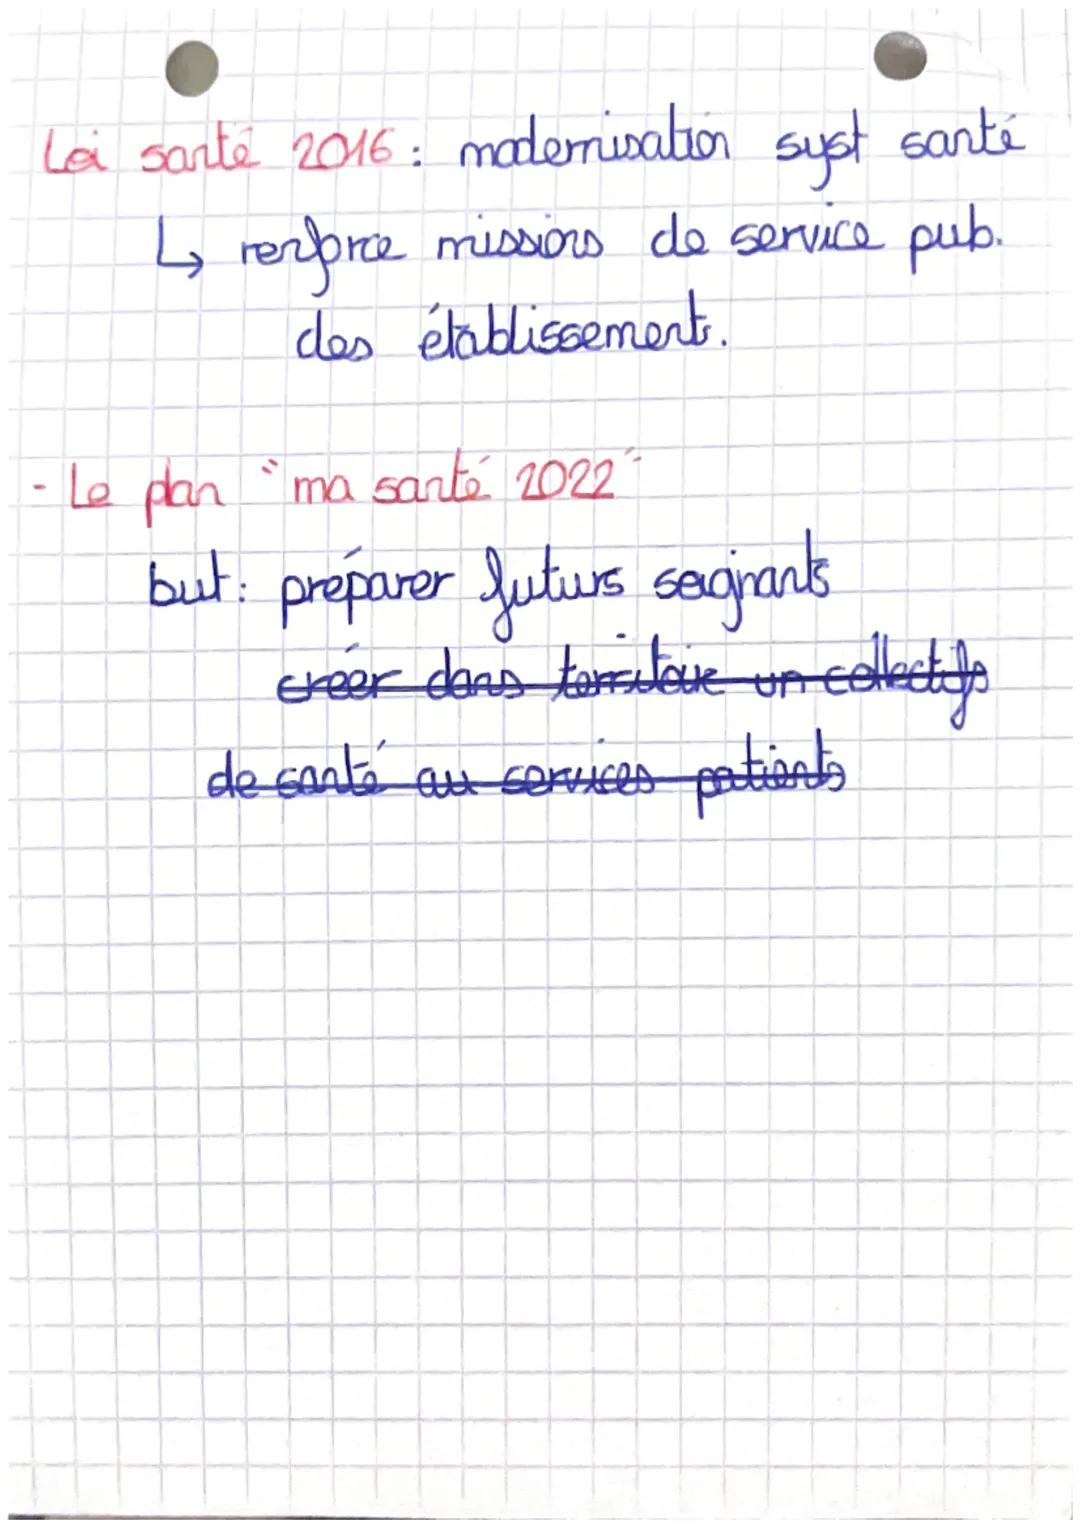 Loi santé 2016 : modernisation syst santé
↳ renforce missions de service pub.
des établissement.
- Le plan "ma santé 2022"
but : préparer futurs seignants
créer dans territoire un collectifs
de santé au services patients